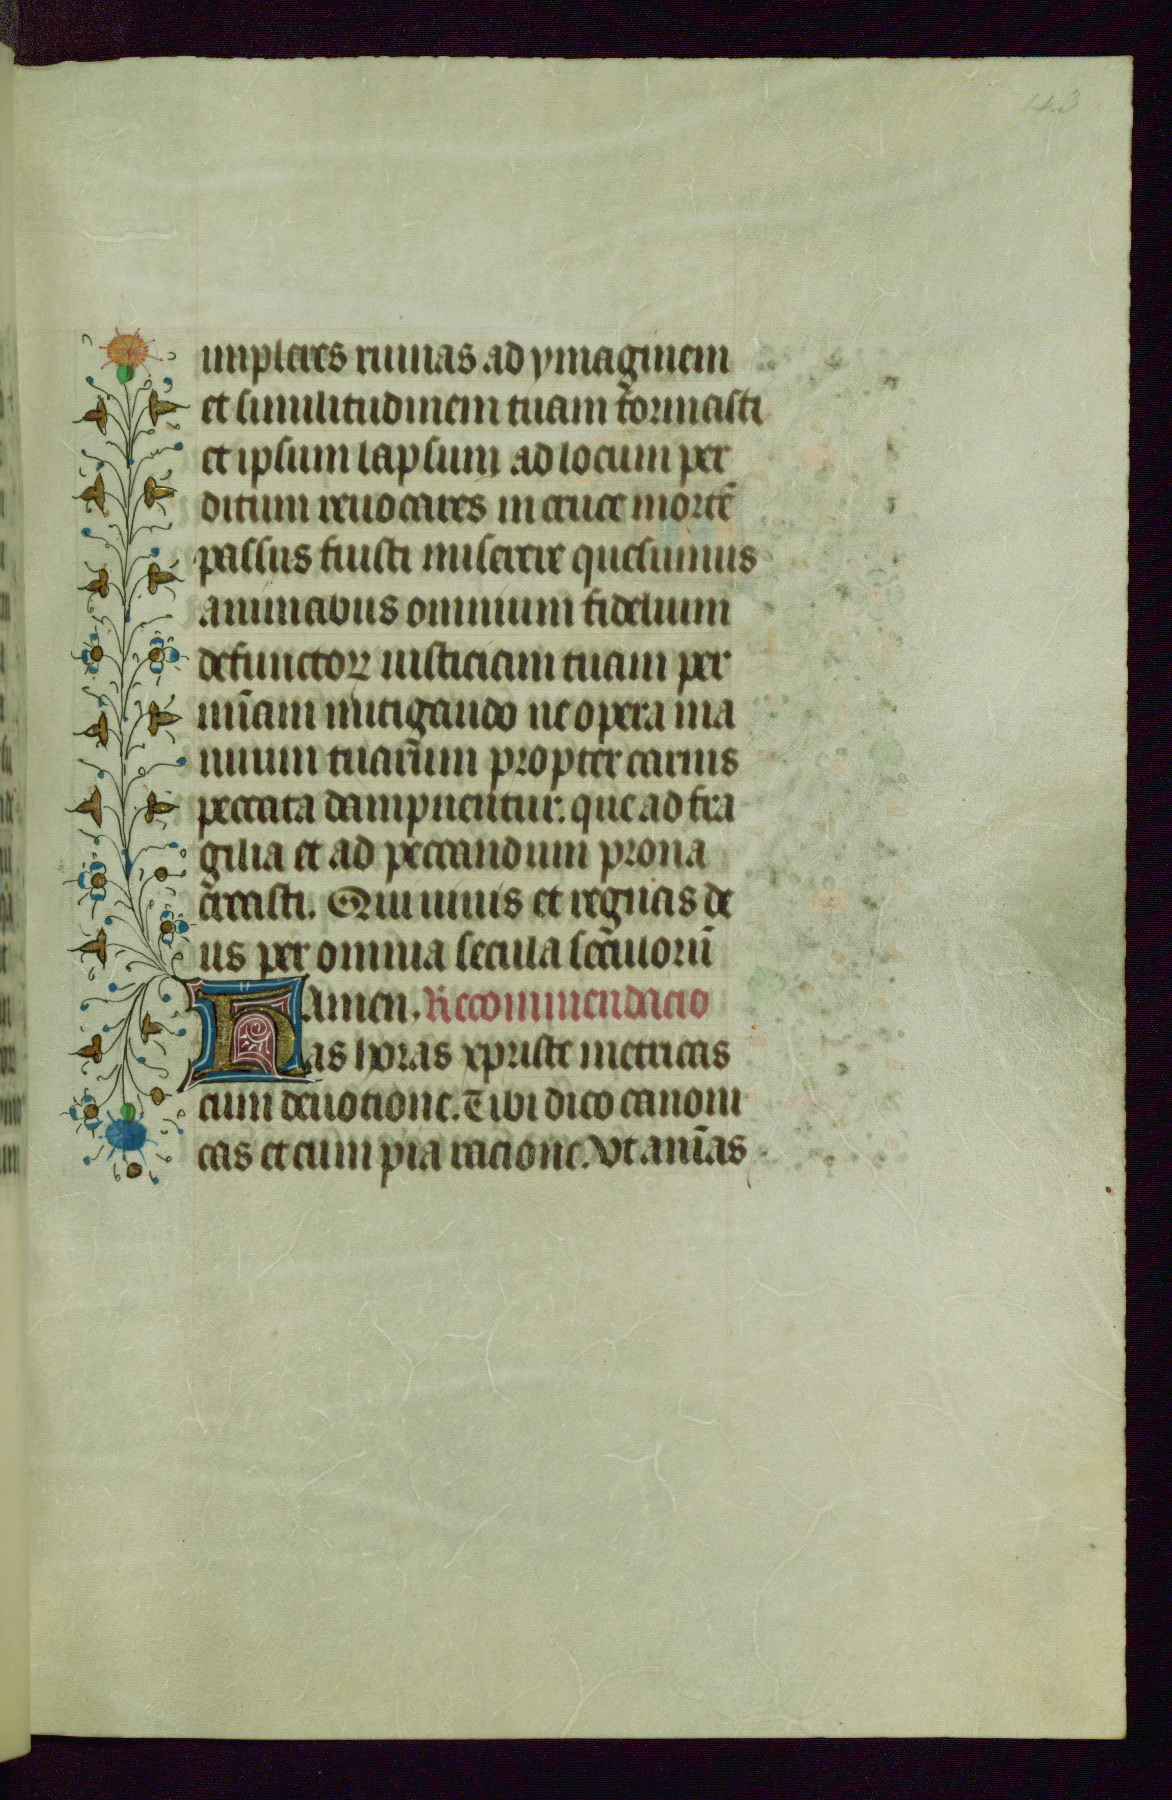 43
impleres ruinas ad ymaginem
et similitudinem tuam formasti
et ipsum lapsum ad locum per
ditum reuocares in cruce mortē
passus fuisti miserere quesumus
animabus omnium fidelium
defunctoꝝ iusticiam tuam per
mīam mitigando ne opera ma
nuum tuarum propter carnis
peccata dampnentur: que ad fra
gilia et ad peccandum prona
creasti. Qui uiuis et regnas de
us per omnia secula seculorū
amen. Recommendacio
Has horas xpriste metricas
cum deuotione. Tibi dico canoni
cas et cum pia racione. Vt anīas